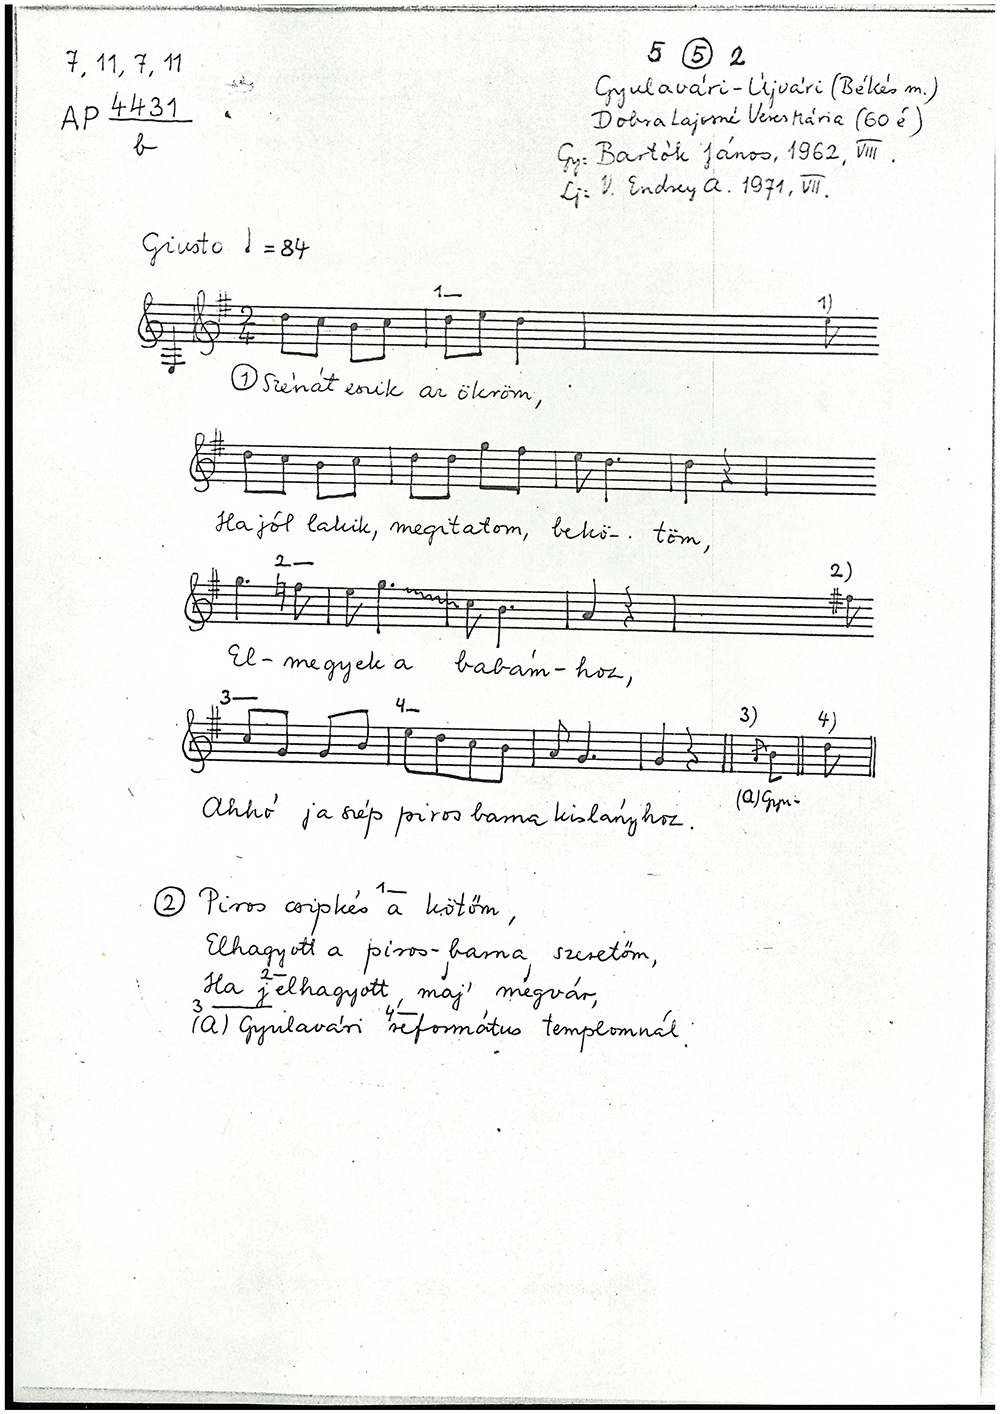 7, 11, 7, 11
AP 4431
b
5 5 2
Gyulavári-Újvári (Békés m.)
Dobra Lajosné Veres Mária (60 é)
Gy: Bartók János, 1962, VIII.
Lj: V. Endrey A. 1971, VII.
Giusto = 84
1 1)
2
4
① Szénát eszik az ökröm,
Ha jól lakik, megitatom, bekö- töm,
2 2)
El- megyek a babám-hoz,
3 4 3) 4)
(A) Gyu-
Ahhó ja szép piros barna kislányhoz.
② Piros csipkés 1 a kötőm,
Elhagyott a piros-barna szeretőm,
Ha 2 jelhagyott, maj' mégvár,
3 (A) Gyulavári 4 református templomnál.